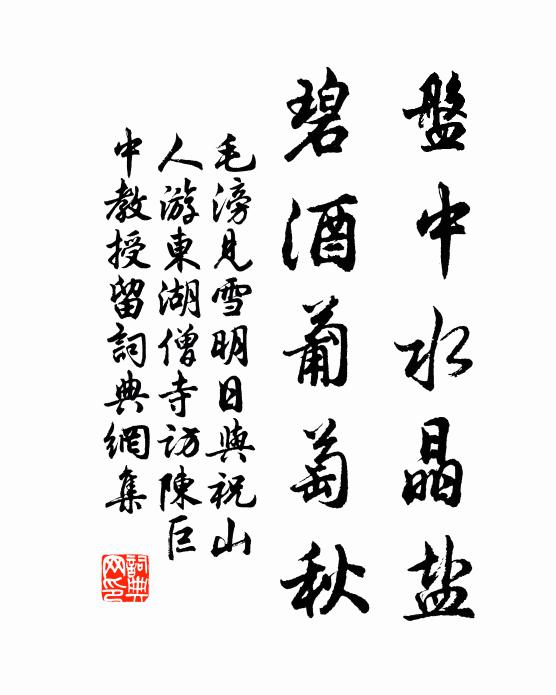 盤中水晶盐
碧酒葡萄秋
毛滂見雪明日與祝山
人游東湖僧寺訪陳巨
中教授留詞典網集
詞典
网印